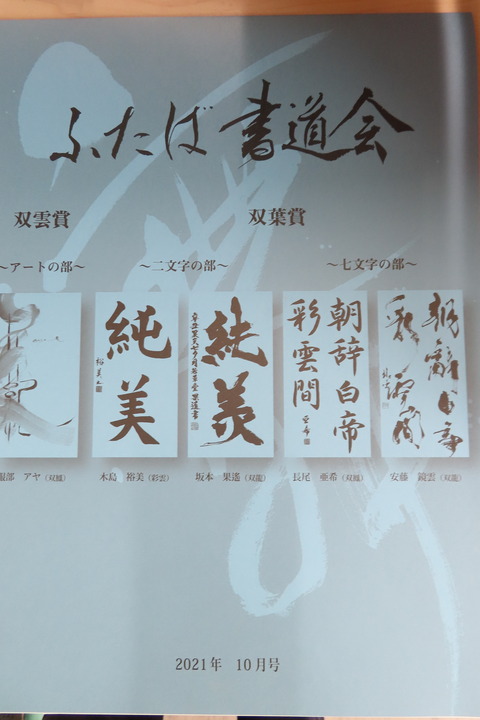 ふたば書道会
双雲賞
双葉賞
～アートの部～
～二文字の部～
～七文字の部～
純美
裕美
純美
朝辞白帝
彩雲間
亜希
朝辞白帝
彩雲間
服部 アヤ（双鳳）
木島 裕美（彩雲）
坂本 果遙（双龍）
長尾 亜希（双鳳）
安藤 鏡雲（双龍）
2021年 10月号